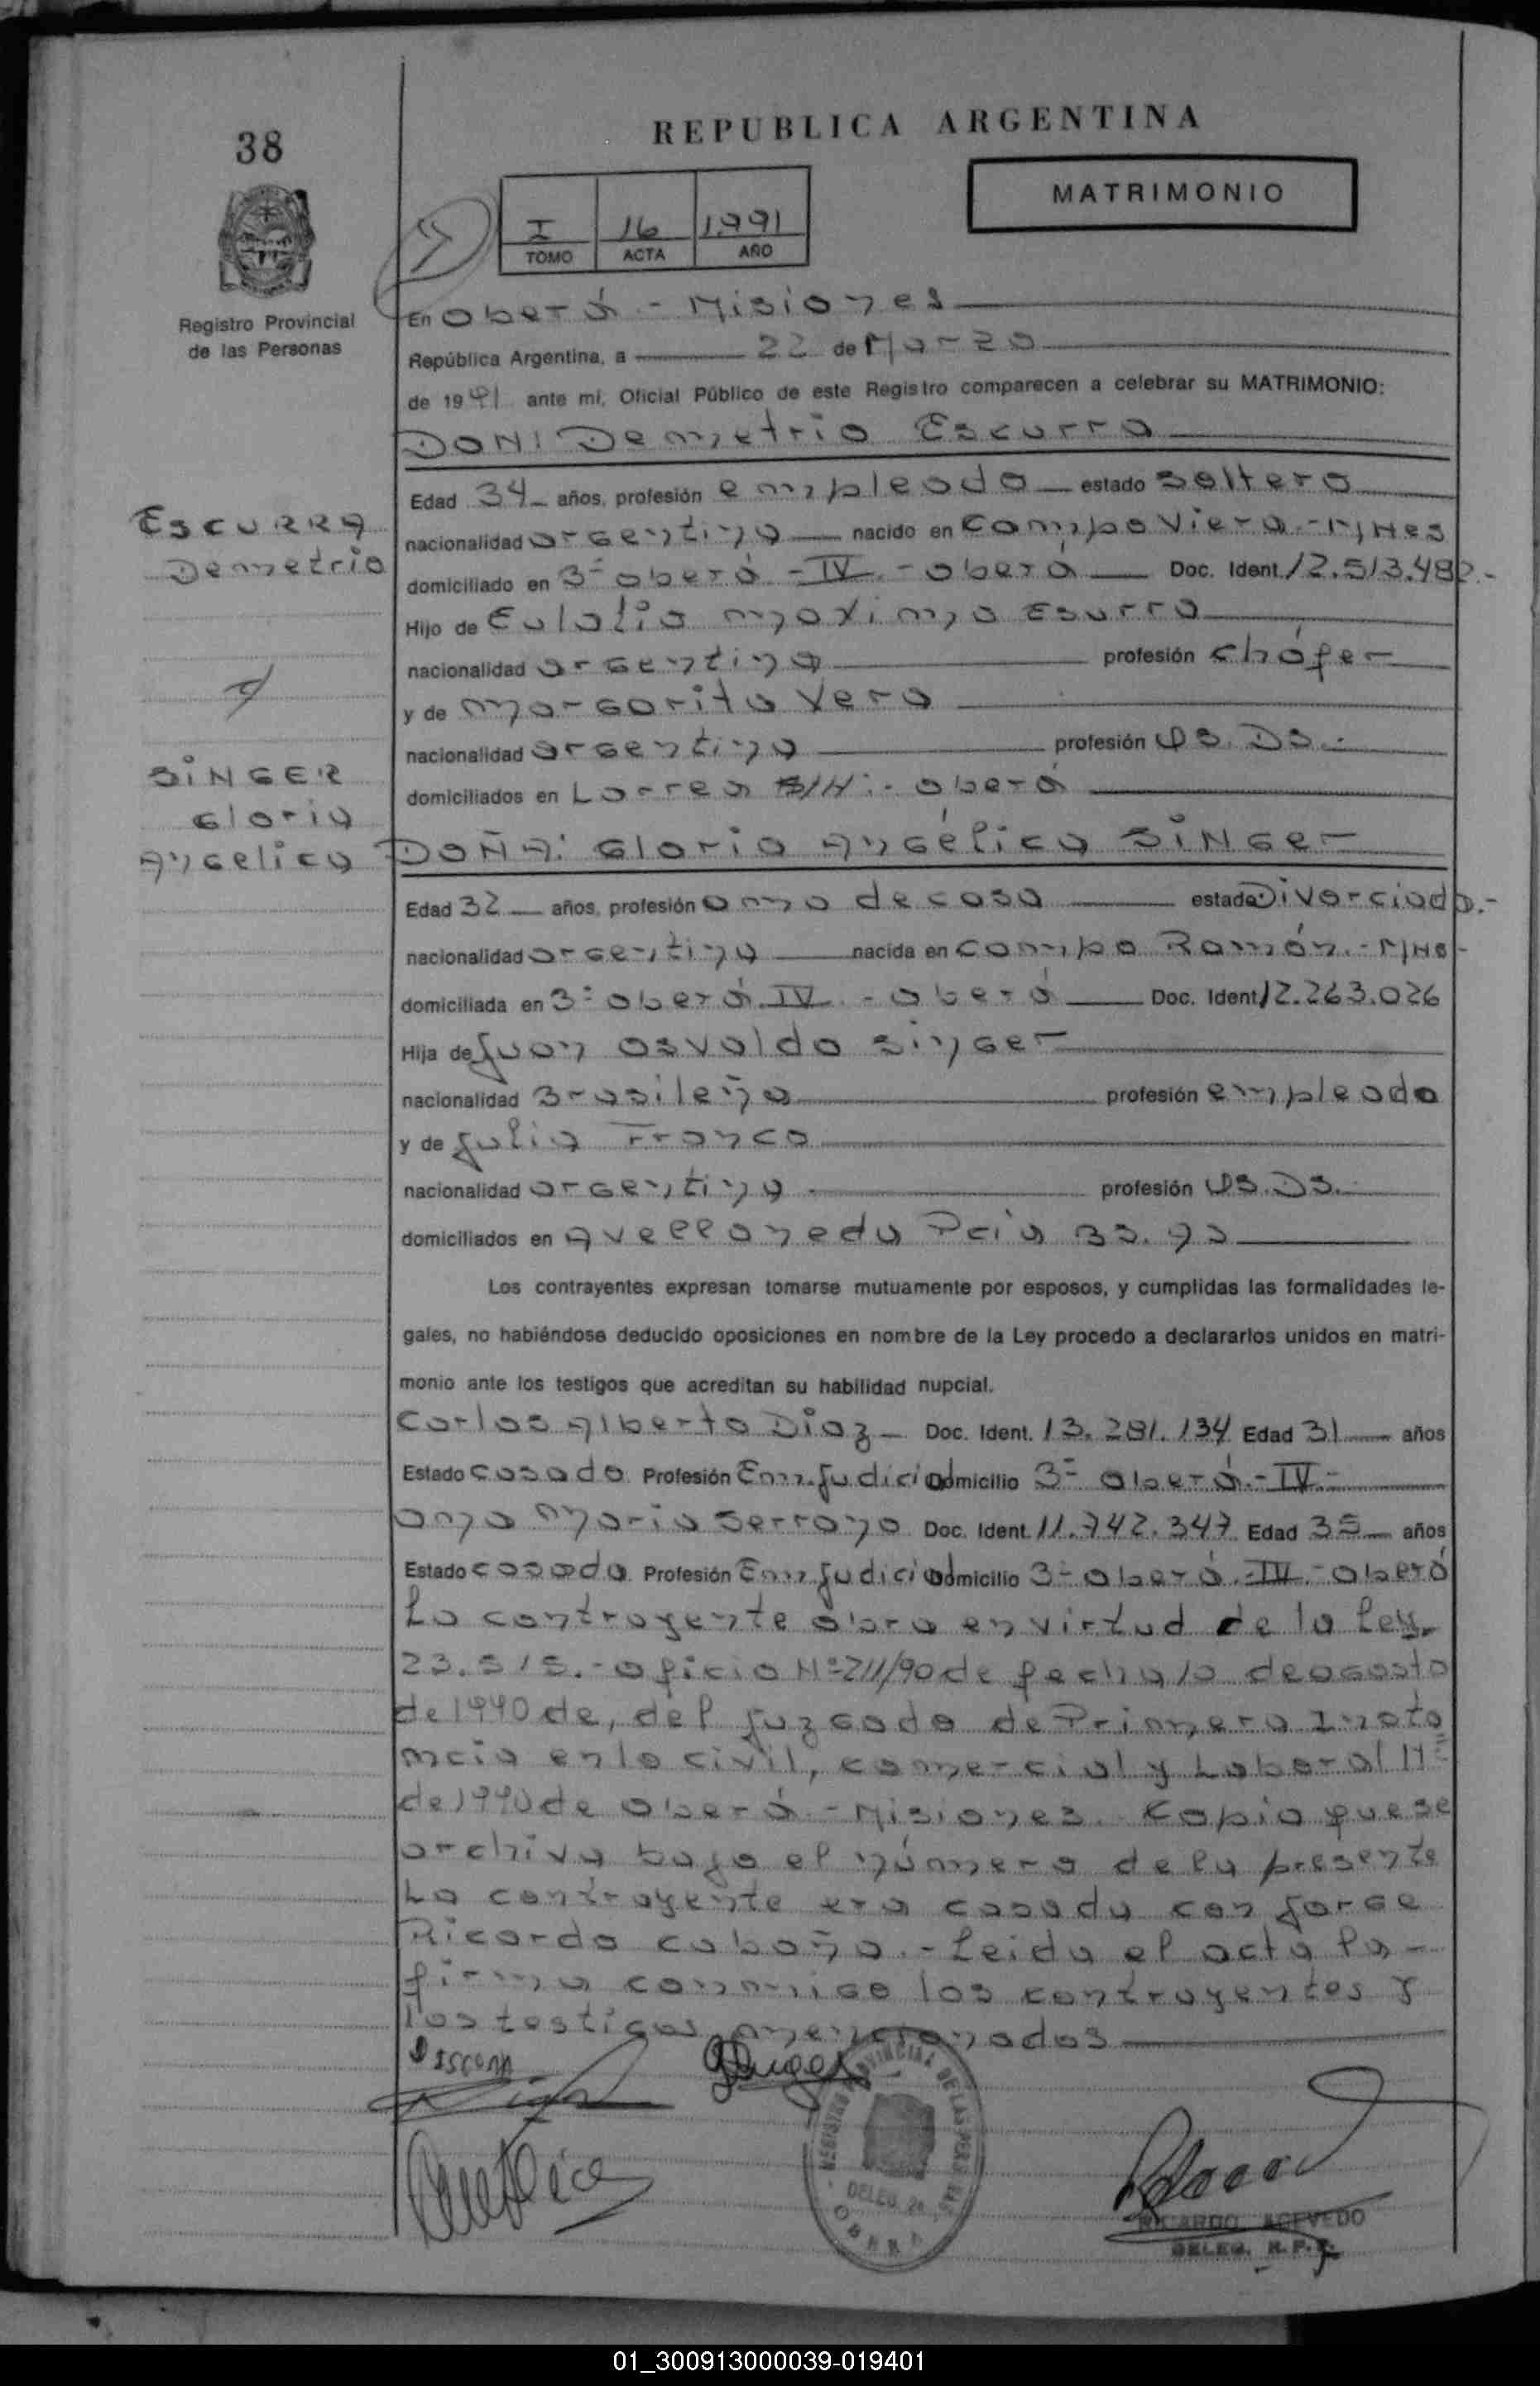 38
REPUBLICA ARGENTINA
MATRIMONIO
I 16 1991
TOMO ACTA AÑO
Registro Provincial
de las Personas
En Oberá - Misiones
República Argentina, a 22 de Marzo
de 1991 ante mí, Oficial Público de este Registro comparecen a celebrar su MATRIMONIO:
DON: Demetrio Escurra
Edad 34 años, profesión empleado estado soltero
ESCURRA
Demetrio
nacionalidad argentina nacido en Campo Viera.-Mnes
domiciliado en 3ª oberá - IV.-oberá Doc. Ident. 12.513.482.-
Hijo de Eulalio maximo Esurra
nacionalidad argentina profesión chófer
y de margarita Vera
nacionalidad argentina profesión qs. Ds.-
domiciliados en Larrea S/N:- oberá
SINGER
Gloria
Angelica
DOÑA: Gloria Angélica SINGer
Edad 32 años, profesión ama de casa estado Divorciada.-
nacionalidad argentina nacida en campo Ramón.-Mns-
domiciliada en 3ª oberá IV.-oberá Doc. Ident. 12.263.026
Hija de Juan osvaldo singer
nacionalidad Brasileña profesión empleado
y de Julia Franco
nacionalidad argentina profesión qs.Ds.-
domiciliados en Avellaneda Pcia Bs. As
Los contrayentes expresan tomarse mutuamente por esposos, y cumplidas las formalidades le-
gales, no habiéndose deducido oposiciones en nombre de la Ley procedo a declararlos unidos en matri-
monio ante los testigos que acreditan su habilidad nupcial.
Carlos Alberto Diaz Doc. Ident. 13.281.134 Edad 31 años
Estado casado Profesión Em.Judicial domicilio 3ª oberá.-IV.-
ana maria Serrano Doc. Ident. 11.742.347 Edad 35 años
Estado casada Profesión Em.Judicial domicilio 3ª oberá.-IV.-oberá
La contrayente obra en virtud de la Ley.
23.515.-oficio Nº211/90 de fecha 10 de agosto
de 1990 de, del Juzgado de Primera Insta
ncia en lo civil, comercial y Laboral Nº
de 1990 de oberá - Misiones. Copia que se
archiva bajo el número de la presente
La contrayente era casada con Jorge
Ricardo cabaña.-Leida el acta la-
firma conmigo los contrayentes y
los testigos mencionados
REGISTRO PROVINCIAL DE LAS PERSONAS
DELEG. 2a
OBERA
RICARDO ACEVEDO
DELEG. R.P.P.
01_300913000039-019401